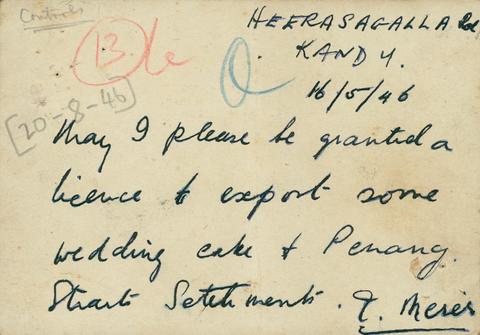 Controls
HEERASAGALLA Rd
KANDY.
13
16/5/46
[20-8-46]
May I please be granted a
licence to export some
wedding cake to Penang.
Straits Settlements.